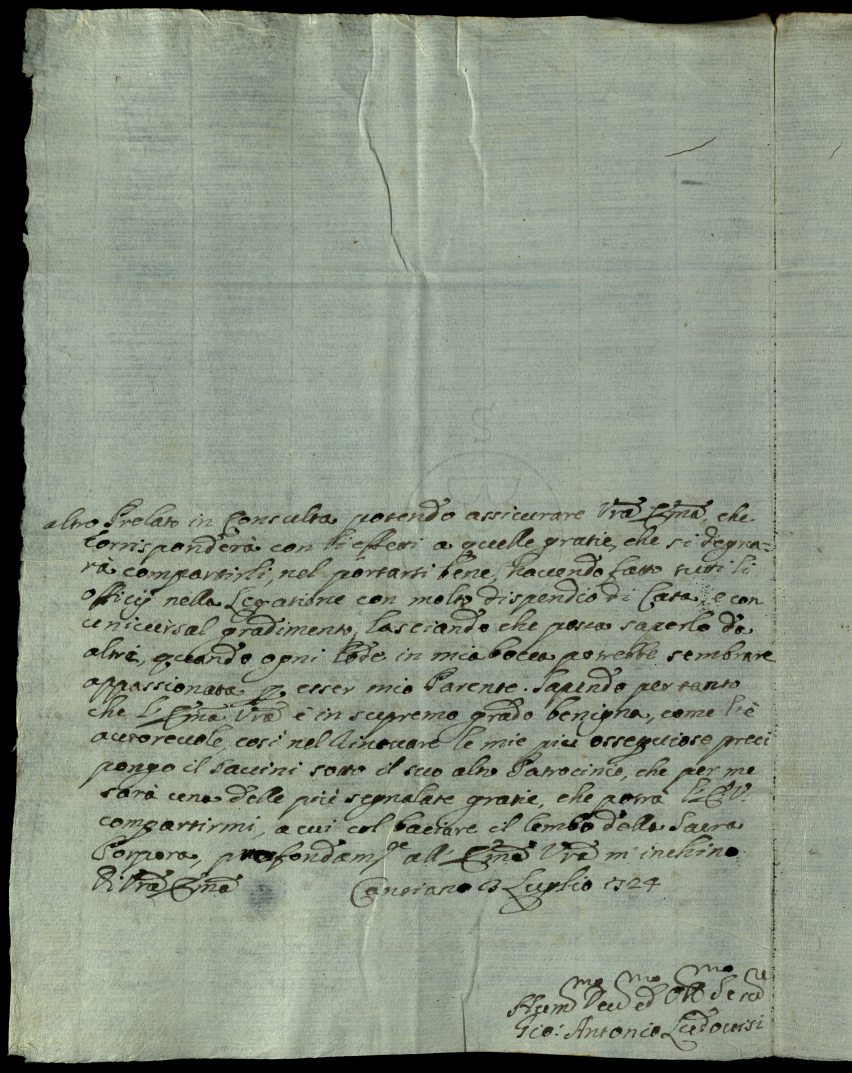 altro Prelato in Consulta potendo assicurare Vrã Emã, che
corrisponderà con li effetti a quelle gratie, che si degna=
rà compartirli, nel portarsi bene, havendo fatto tutti li
officij nella Legatione con molto dispendio di Casa, e con
universal gradimento, lasciando che possa saperlo da
altri, quando ogni lode in mia bocca potrebbe sembrare
appassionata p. esser mio Parente. Sapendo per tanto
che l'Emã Vrã è in supremo grado benigna, come li è
autorevole, così nel rinovare le mie più ossequiose preci
pongo il Savini sotto il suo alto Patrocinio, che per me
sarà una delle più segnalate gratie, che potrà l'E.V.
compartirmi, a cui col baciare il lembo della Sacra
Porpora, profondamre all'Emã Vrã m'inchino
Di Vrã Emã Cantiano 13 Luglio 1724
Hummo Devmo ed Obbmo Serre
Gio: Antonio Ludovisi